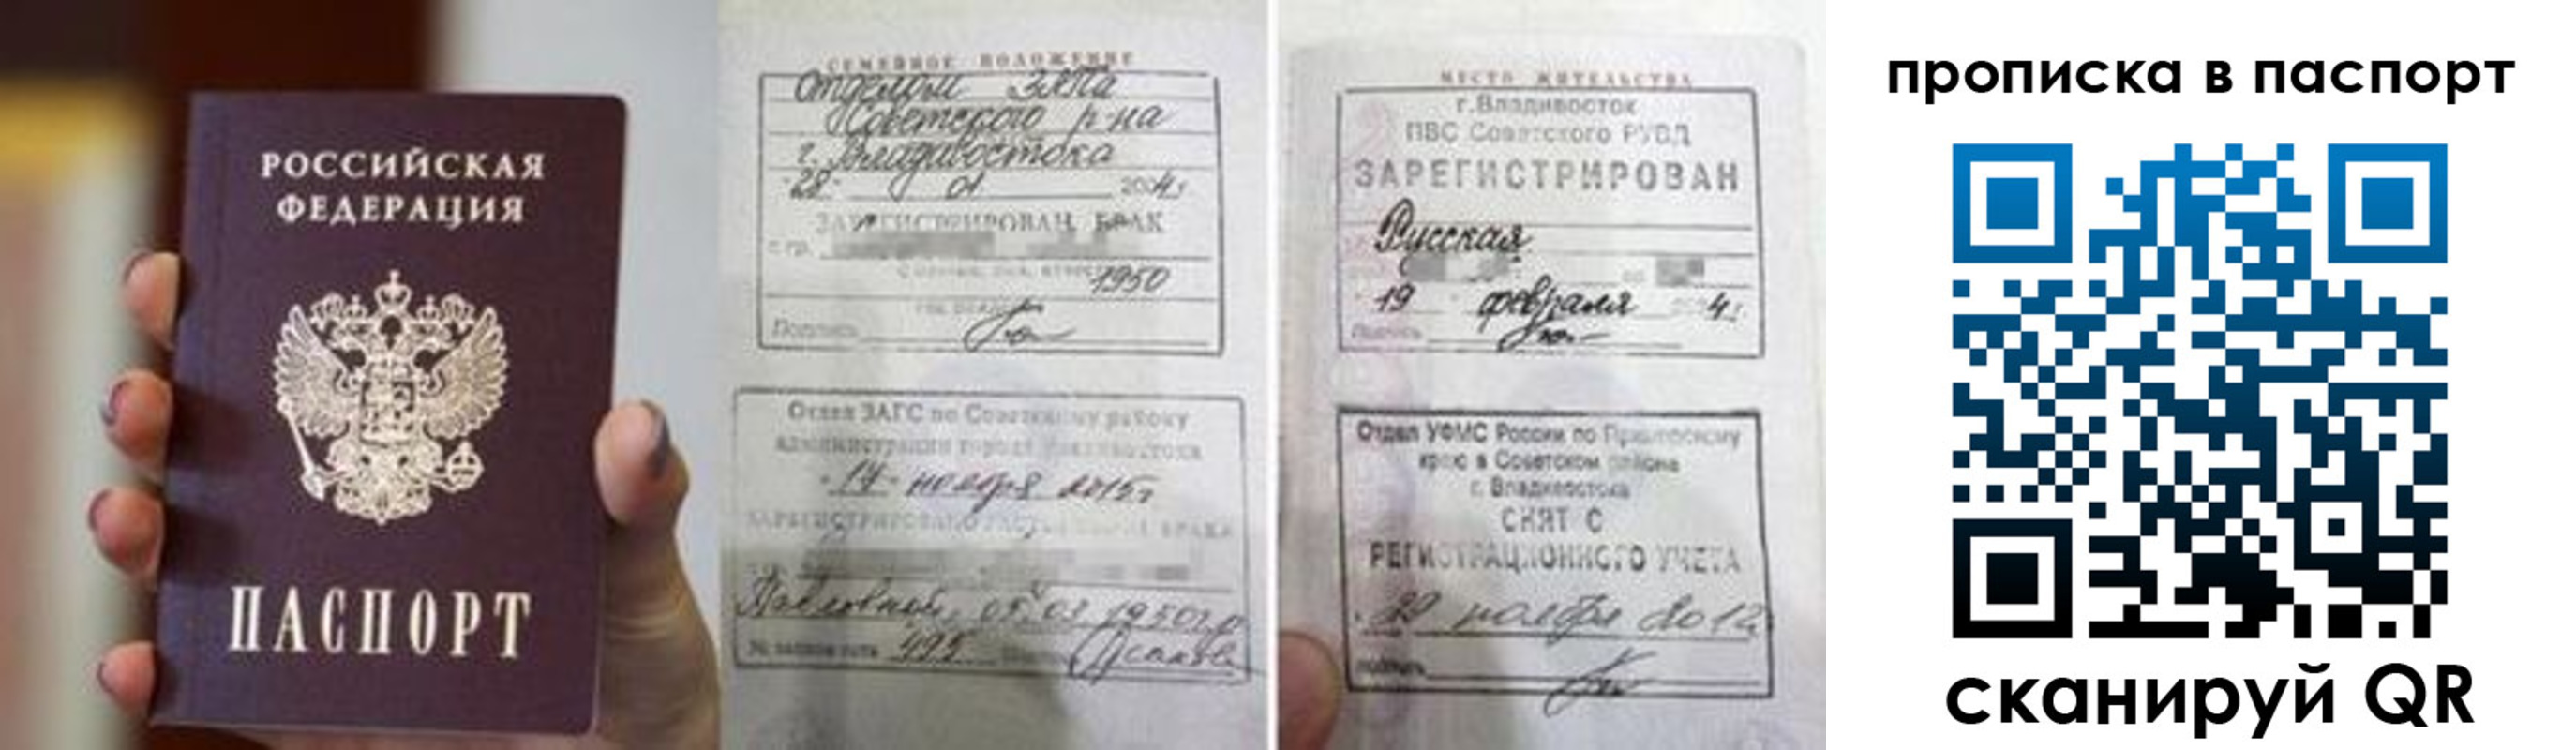 РОССИЙСКАЯ
ФЕДЕРАЦИЯ
ПАСПОРТ
СЕМЕЙНОЕ ПОЛОЖЕНИЕ
Отделом ЗАГСа
Советского р-на
г. Владивостока
"28" 01 2004г
ЗАРЕГИСТРИРОВАН БРАК
с гр.
1950
Подпись
Отдел ЗАГС по Советскому району
администрации города Владивостока
"17" ноября 2015г
ЗАРЕГИСТРИРОВАНО РАСТОРЖЕНИЕ БРАКА
Павловной, 05.03 1950г.р
№ записи акта 495
МЕСТО ЖИТЕЛЬСТВА
г.Владивосток
ПВС Советского РУВД
ЗАРЕГИСТРИРОВАН
Русская
19 февраля 4г
Подпись
Отдел УФМС России по Приморскому
краю в Советском районе
г. Владивостока
СНЯТ С
РЕГИСТРАЦИОННОГО УЧЕТА
ноября 2012
подпись
прописка в паспорт
сканируй QR